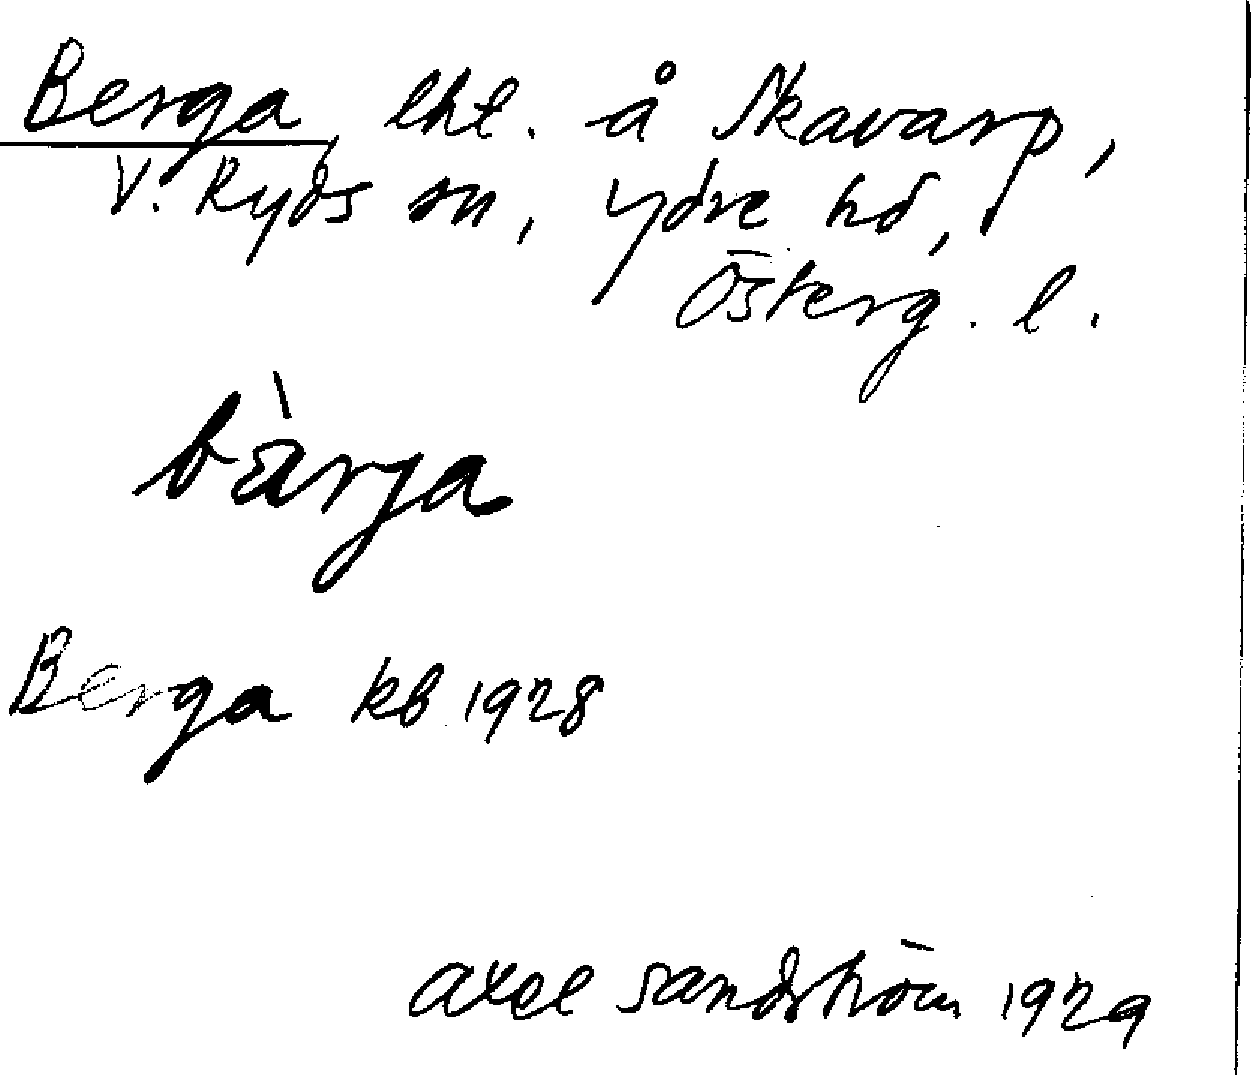 Berga, lht. å Skavarp,
V. Ryds sn, Ydre hd,
Österg. l.
bàrja
Berga kb 1928
Axel Sandström 1929